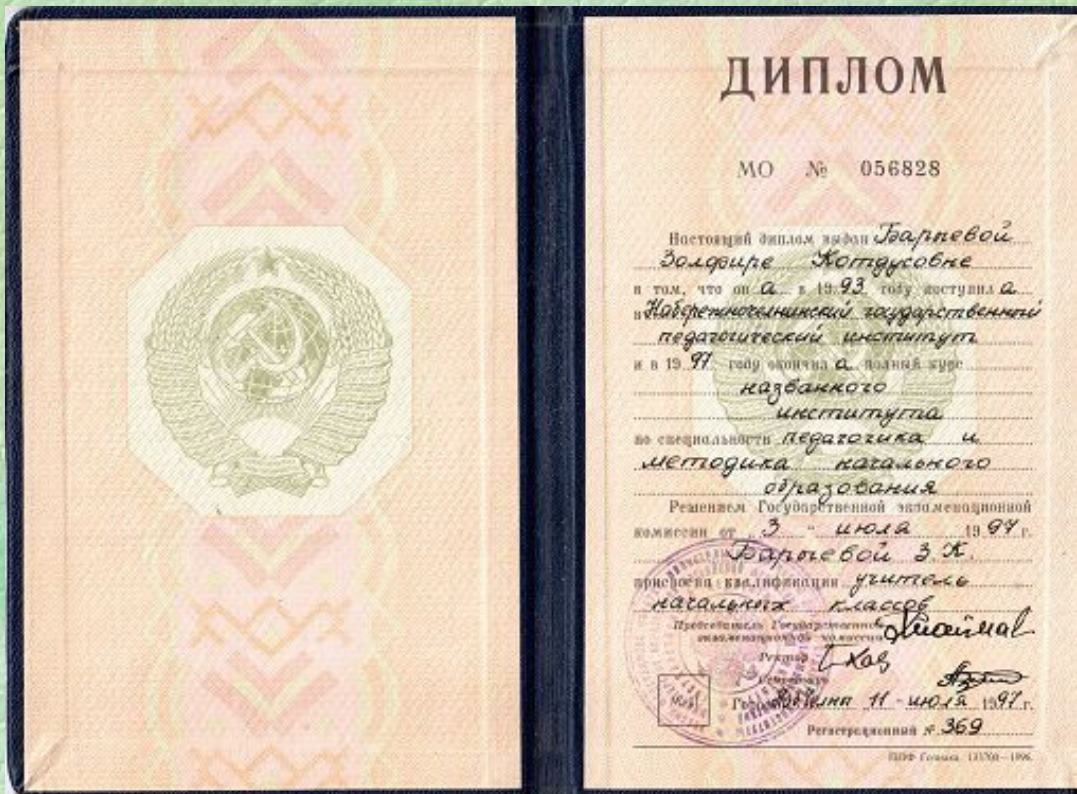 ДИПЛОМ
МО № 056828
Настоящий диплом выдан Барыевой
Золфире Котдусовне
в том, что он а в 1993 году поступил а
в Набережночелнинский государственный
педагогический институт
и в 1997 году окончил а полный курс
названного
института
по специальности педагогика и
методика начального
образования
Решением Государственной экзаменационной
комиссии от 3 " июля 1997 г.
Барыевой З.К.
присвоена квалификация учитель
начальных классов
Председатель Государственной
экзаменационной комиссии
Ректор
Секретарь
Город Н.Челны 11 " июля 1997 г.
Регистрационный № 369
1996.